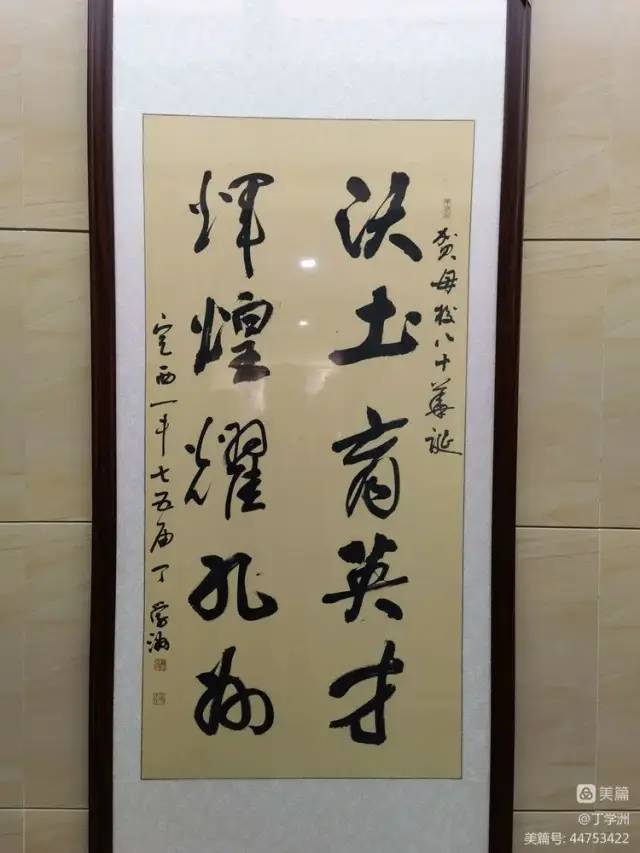 贺母校八十華诞
沃土育英才
煇煌耀
定西一中七五届丁学洲
美篇
@丁学洲
美篇号: 44753422